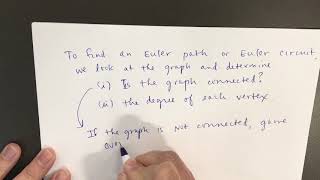 To find an Euler path or Euler circuit,
we look at the graph and determine
(i) Is the graph connected?
(ii) the degree of each vertex.
If the graph is not connected, game
over